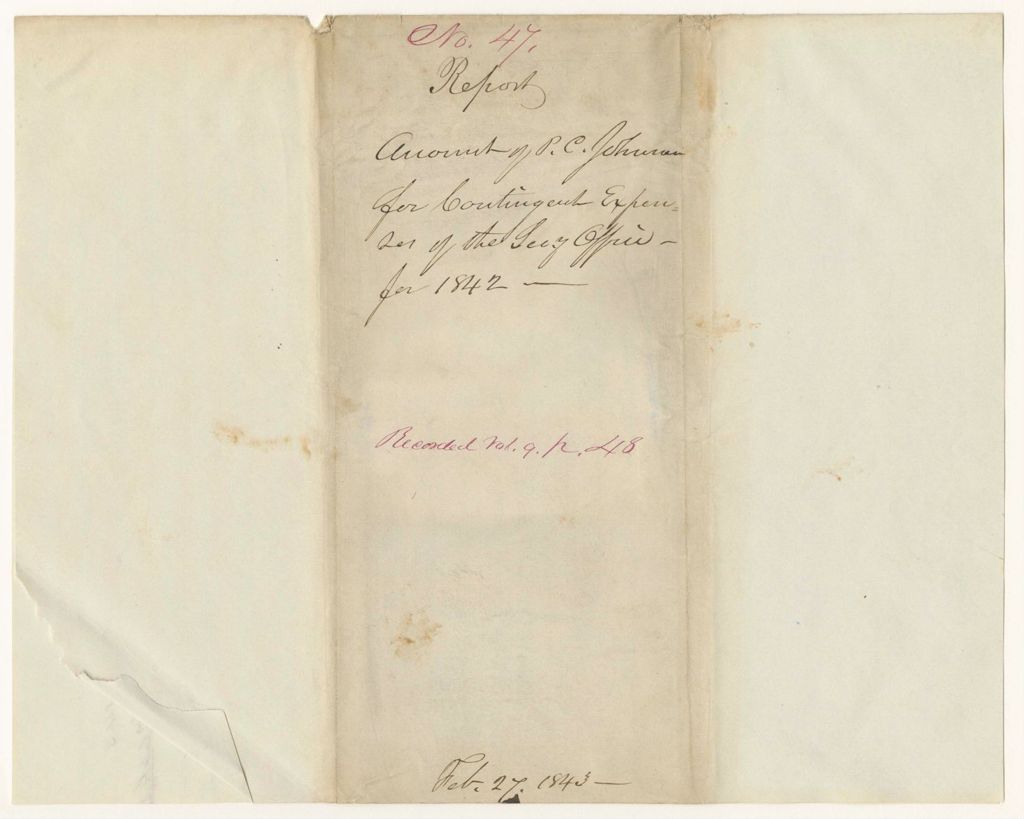 No. 47.
Report
Account of P. C. Johnson
for Contingent Expen=
ses of the Secy Office –
for 1842 —
Recorded Vol. 9. p. 48
Feb. 27. 1843 —